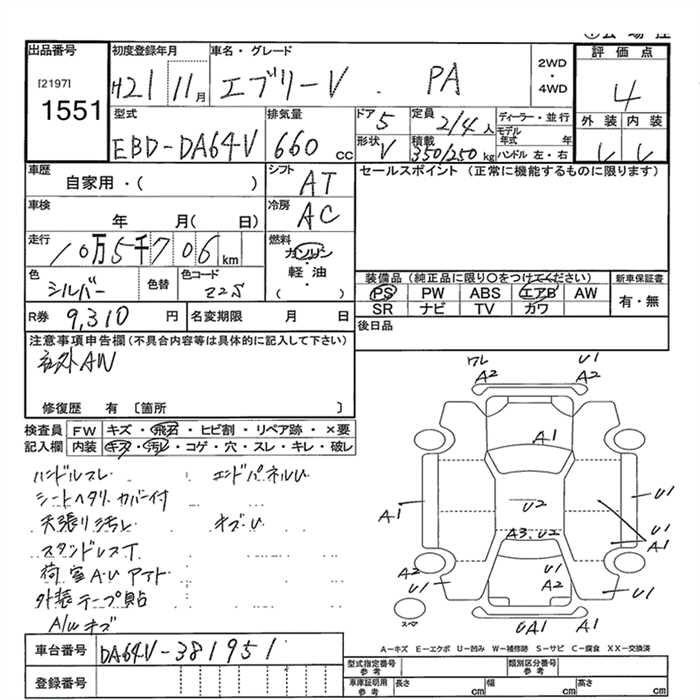 出品番号 初度登録年月 車名・グレード 2WD・4WD 評価点
[2197]
1551
H21 11月 エブリーV . PA 4
型式 排気量 ドア 5 定員 2/4人 ディーラー・並行 外装 内装
EBD-DA64V 660cc 形状 V 積載 350/250kg モデル年式 年 ハンドル 左・右
車歴 自家用・( ) シフト AT セールスポイント (正常に機能するものに限ります)
車検 年 月( 日) 冷房 AC
走行 10万5千706km 燃料 ガソリン・軽油・( )
色 シルバー 色替 色コード Z2S
装備品 (純正品に限り○をつけてください) 新車保証書
PS PW ABS エアB AW 有・無
SR ナビ TV カワ
R券 9,310円 名変期限 月 日
後日品
注意事項申告欄 (不具合内容等は具体的に記入して下さい)
社外AW
修復歴 有 〔箇所 〕
検査員記入欄 FW キズ・飛石・ヒビ割・リペア跡・×要
内装 キズ・汚レ・コゲ・穴・スレ・キレ・破レ
ハンドルスレ エンドパネルU
シートヘタリ カバー付
天張り汚レ キズU
スタンドレスT
荷室A・U アアト
外装テープ貼
A/Wキズ
ワレ A2 U1 A2
A1
U2
A1 U1
A3.U2 U1 A1
A2 U1 U1 A2 U1
スマ UA1 A1
A－キズ E－エクボ U－凹み W－補修跡 S－サビ C－腐食 XX－交換済
車台番号 DA64V-381951
登録番号
型式指定番号 参考 類別区分番号 参考
車庫証明用 参考 長さ cm 幅 cm 高さ cm